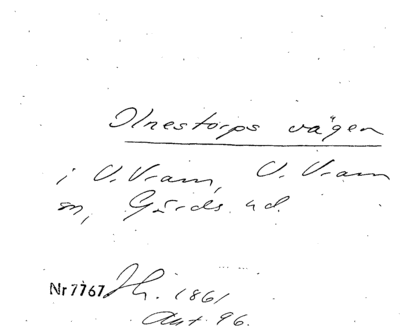 Olnestorps vägen
i V. Vram, V. Vram
sn, Gärds hd.
Nr 7767 Jh. 1861
Akt 96.